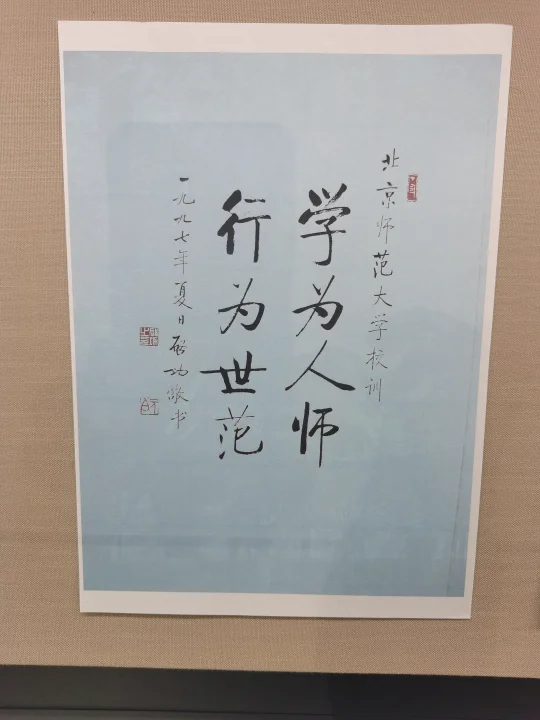 北京师范大学校训
学为人师
行为世范
一九九七年夏日启功敬书